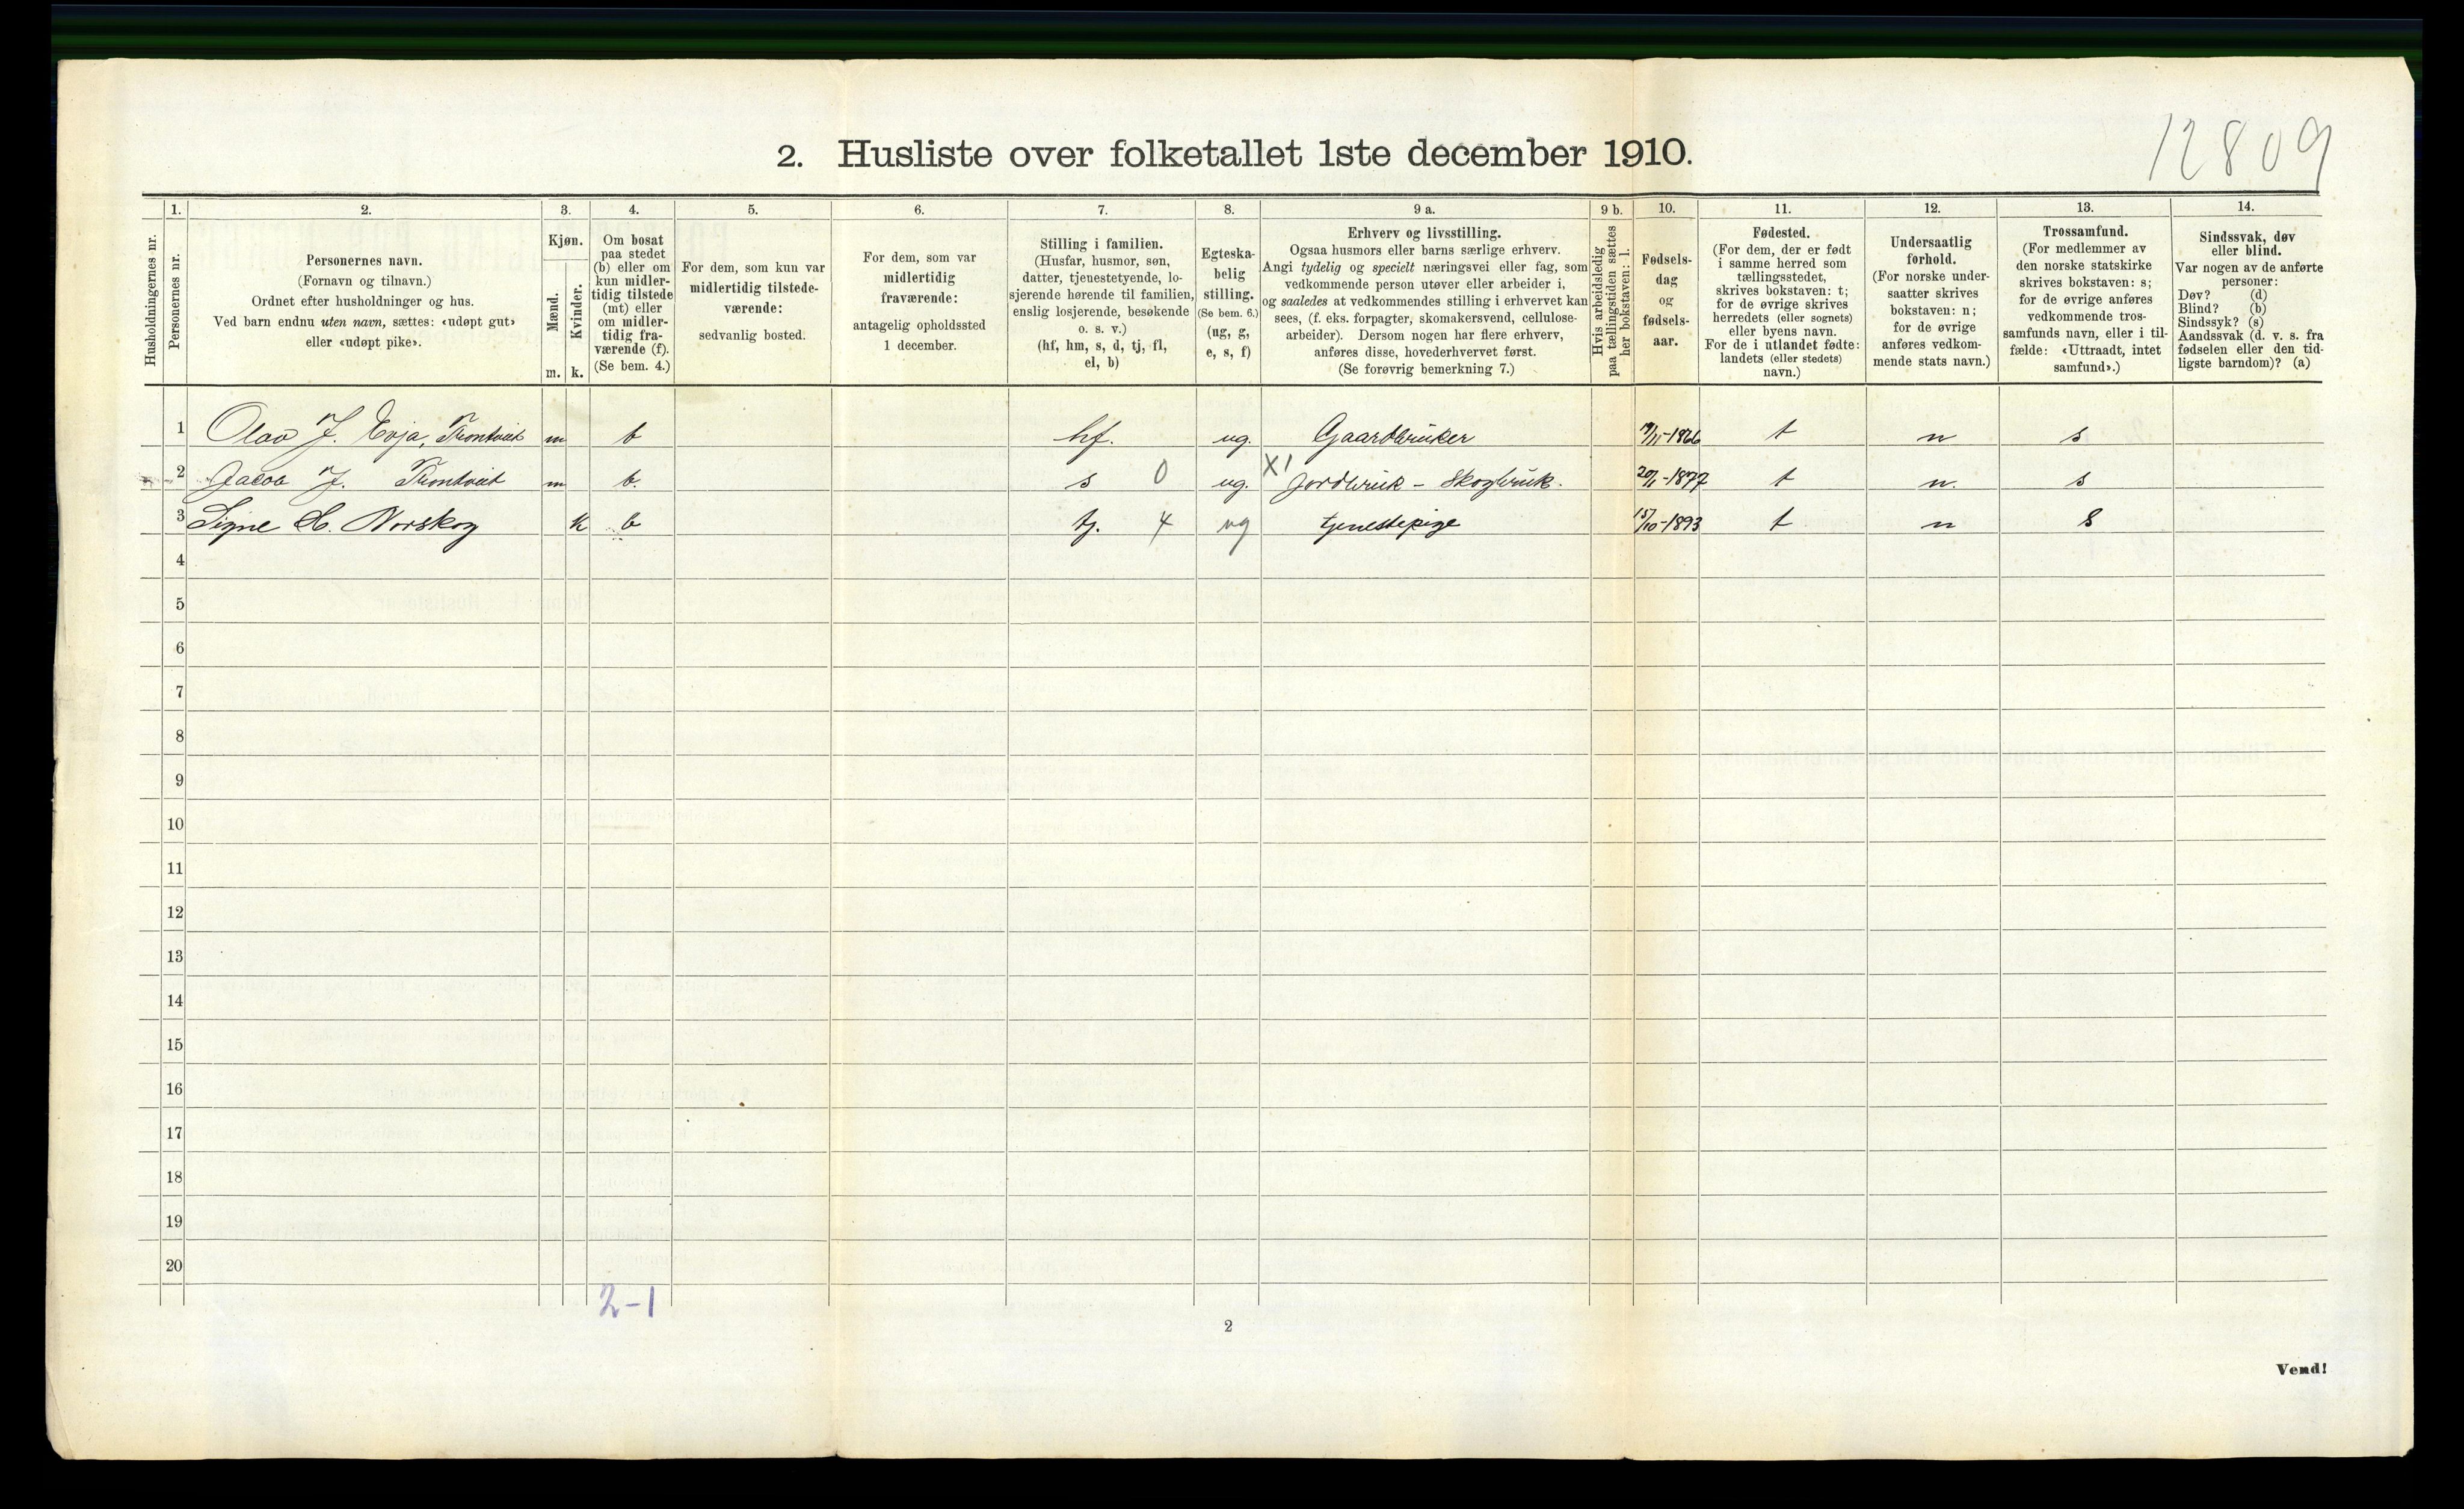 12809
2. Husliste over folketallet 1ste december 1910.
Husholdningernes nr.
1.
Personernes nr.
2.
Personernes navn.
(Fornavn og tilnavn.)
Ordnet efter husholdninger og hus.
Ved barn endnu uten navn, sættes: «udøpt gut»
eller «udøpt pike».
3.
Kjøn.
Mænd.
Kvinder.
m. k.
4.
Om bosat
paa stedet
(b) eller om
kun midler-
tidig tilstede
(mt) eller
om midler-
tidig fra-
værende (f).
(Se bem. 4.)
5.
For dem, som kun var
midlertidig tilstede-
værende:
sedvanlig bosted.
6.
For dem, som var
midlertidig
fraværende:
antagelig opholdssted
1 december.
7.
Stilling i familien.
(Husfar, husmor, søn,
datter, tjenestetyende, lo-
sjerende hørende til familien,
enslig losjerende, besøkende
o. s. v.)
(hf, hm, s, d, tj, fl,
el, b)
8.
Egteska-
belig
stilling.
(Se bem. 6.)
(ug, g,
e, s, f)
9 a.
Erhverv og livsstilling.
Ogsaa husmors eller barns særlige erhverv.
Angi tydelig og specielt næringsvei eller fag, som
vedkommende person utøver eller arbeider i,
og saaledes at vedkommendes stilling i erhvervet kan
sees, (f. eks. forpagter, skomakersvend, cellulose-
arbeider). Dersom nogen har flere erhverv,
anføres disse, hovederhvervet først.
(Se forøvrig bemerkning 7.)
9 b.
Hvis arbeidsledig
paa tællingstiden sættes
her bokstaven: l.
10.
Fødsels-
dag
og
fødsels-
aar.
11.
Fødested.
(For dem, der er født
i samme herred som
tællingsstedet,
skrives bokstaven: t;
for de øvrige skrives
herredets (eller sognets)
eller byens navn.
For de i utlandet fødte:
landets (eller stedets)
navn.)
12.
Undersaatlig
forhold.
(For norske under-
saatter skrives
bokstaven: n;
for de øvrige
anføres vedkom-
mende stats navn.)
13.
Trossamfund.
(For medlemmer av
den norske statskirke
skrives bokstaven: s;
for de øvrige anføres
vedkommende tros-
samfunds navn, eller i til-
fælde: «Uttraadt, intet
samfund».)
14.
Sindssvak, døv
eller blind.
Var nogen av de anførte
personer:
Døv? (d)
Blind? (b)
Sindssyk? (s)
Aandssvak (d. v. s. fra
fødselen eller den tid-
ligste barndom)? (a)
1 Olav J. Evja, Trontveit m b hf. ug. Gaardbruker 1866 t n s
2 Jacob J. Trontveit m b. s 0 ug. X1 Jordbruk - Skogbruk. 20/1-1877 t n. s
3 Signe Norskog k b tj. 4 ug tjenestepige 15/10-1893 t n S
4
5
6
7
8
9
10
11
12
13
14
15
16
17
18
19
20
2-1
2
Vend!